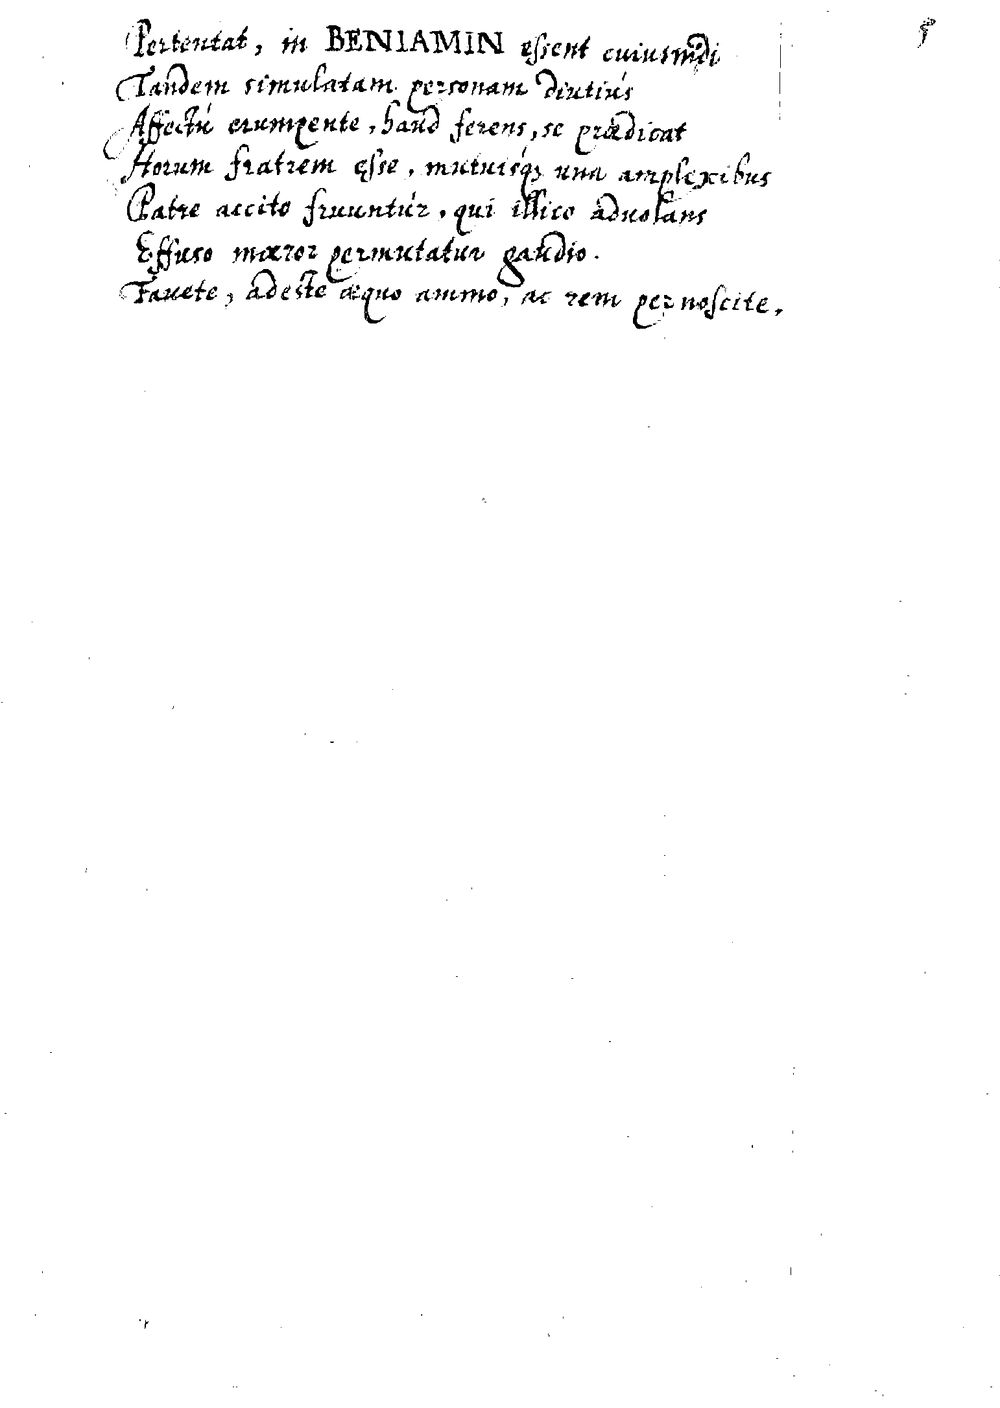 Pertentat, in BENIAMIN essent cuiusmõdi
Tandem simulatam personam diutiùs
Affectu erumpente, haud ferens, se prædicat
Horum fratrem esse, mutuisq; una amplexibus
Patre accito fruuntur, qui illico aduolans
Effuso mæror permutatur gaudio.
Fauete, adeste æquo animo, ac rem pernoscite,